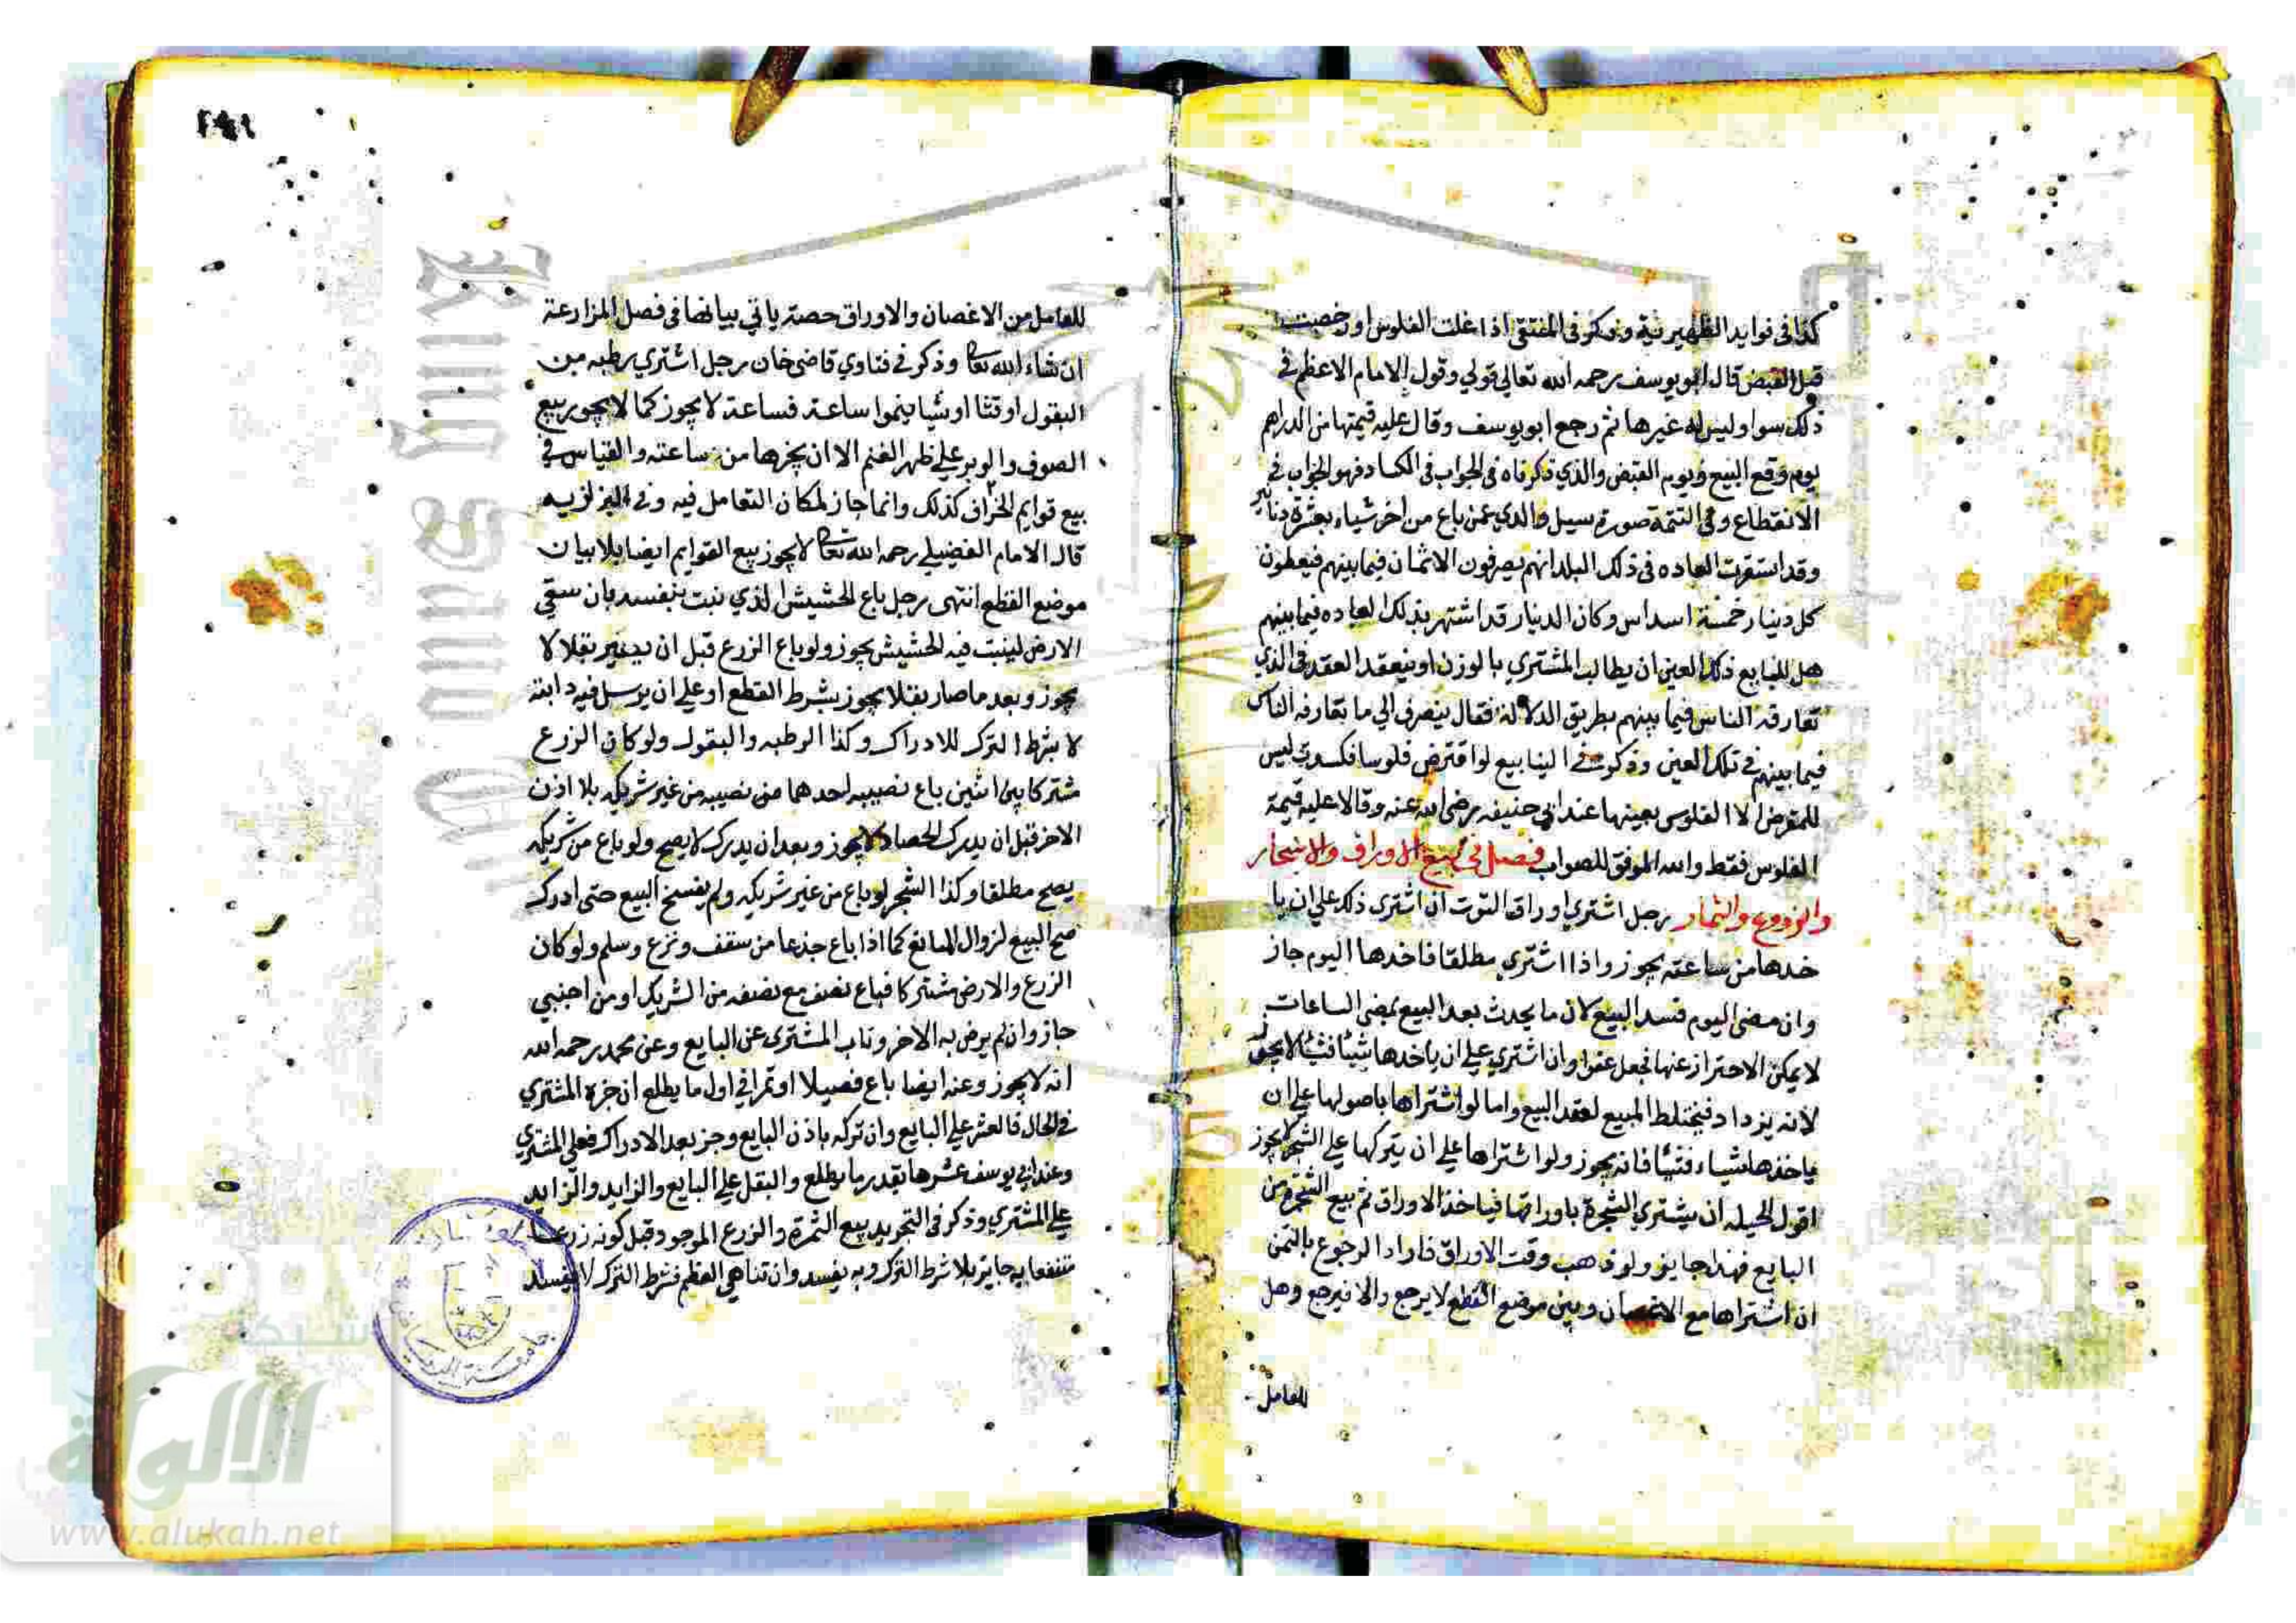 كذا في فوايد الظهيرية وذكر في المنتقى اذا غلت الفلوس او رخصت
قبل القبض قال ابو يوسف رحمه الله تعالي قولي وقول الامام الاعظم في
ذلك سوا وليس له غيرها ثم رجع ابو يوسف وقال عليه قيمتها من الدراهم
يوم وقع البيع ويوم القبض والذي ذكرناه في الجواب في الكساد فهو الجواب في
الانقطاع وفي التتمة صورة سيل والدي عمن باع من اخر شياء بعشرة دنانير
وقد استقرت العاده في ذلك البلد انهم يصرفون الاثمان فيما بينهم فيعطون
كل دينار خمسة اسداس وكان الدينار قد اشتهر بذلك العاده فيما بينهم
هل للبايع ذلك العين ان يطالب المشتري بالوزن او ينعقد العقد في الذي
تعارفه الناس فيما بينهم بطريق الدلالة فقال ينصرف الي ما تعارفه الناس
فيما بينهم في تلك العين وذكر في الينابيع لو اقترض فلوسا فكسدت ليس
للمقرض الا الفلوس بعينها عند ابي حنيفه رضي الله عنه وقالا عليه قيمة
الفلوس فقط والله الموفق للصواب فصل في بيع الاوراق والاشجار
والزروع والثمار رجل اشتري اوراق التوت ان اشترى ذلك علي ان يا
خدها من ساعته يجوز واذا اشتري مطلقا فاخدها اليوم جاز
وان مضى اليوم فسد البيع لان ما يحدث بعد البيع بمضي الساعات
لا يمكن الاحتراز عنها فجعل عفوا وان اشتري علي ان ياخدها شيئا فشيئا لا يجوز
لانه يزداد فيختلط المبيع لعقد البيع واما لو اشتراها باصولها علي ان
ياخذها شياء فشيئا فانه يجوز ولو اشتراها علي ان يتركها علي الشجر لا يجوز
اقول الحيله ان يشتري الشجرة باوراقها فياخذ الاوراق ثم بيع الشجرة من
البايع فهذا جايز ولو ذهب وقت الاوراق فاراد الرجوع بالثمن
ان اشتراها مع الاغصان وبين موضع القطع لا يرجع والا فيرجع وهل
للعامل
للعامل من الاغصان والاوراق حصة ياتي بيانها في فصل المزارعة
ان شاء الله تعالى وذكر في فتاوي قاضي خان رجل اشتري رطبه من
البقول او قثا او شيا ينموا ساعة فساعة لا يجوز كما لا يجوز بيع
الصوف والوبر علي ظهر الغنم الا ان يجزها من ساعته والقياس في
بيع قوايم الخراف كذلك وانما جاز لمكان التعامل فيه وفي البزازيه
قال الامام الفضيلي رحمه الله تعالى لا يجوز بيع القوايم ايضا بلا بيان
موضع القطع انتهى رجل باع الحشيش الذي نبت بنفسه بان سقي
الارض لينبت فيه الحشيش يجوز ولو باع الزرع قبل ان يصير بقلا لا
يجوز وبعد ما صار بقلا يجوز بشرط القطع او علي ان يرسل فيه دابته
لا بشرط الترك للادراك وكذا الرطبه والبقول ولو كان الزرع
مشتركا بين اثنين باع نصيبه احدهما من نصيبه من غير شريكه بلا اذن
الاخر قبل ان يدرك الحصاد لا يجوز وبعد ان يدرك لا يصح ولو باع من شريكه
يصح مطلقا وكذا الشجر لو باع من غير شريكه ولم يفسخ البيع حتى ادرك
صح البيع لزوال المانع كما اذا باع جذعا من سقف ونزع وسلم ولو كان
الزرع والارض مشتركا فباع نصف مع نصفه من الشريك او من اجنبي
جاز وان لم يرض به الاخر وناب المشتري عن البايع وعن محمد رحمه الله
انه لا يجوز وعنه ايضا باع فصيلا او تمرا في اول ما يطلع ان جزه المشتري
في الحال فالعشر علي البايع وان تركه باذن البايع وجز بعد الادراك فعلي المشتري
وعند ابي يوسف عشرها بقدر ما يطلع والبقل علي البايع والزايد والزايد
علي المشتري وذكر في التجريد بيع الثمرة والزرع الموجود قبل كونه زرعا
منتفعا به جايز بلا شرط الترك وبه يفسد وان تناهي العظم فشرط الترك لا يفسد
شبكة
الألوكة
www.alukah.net